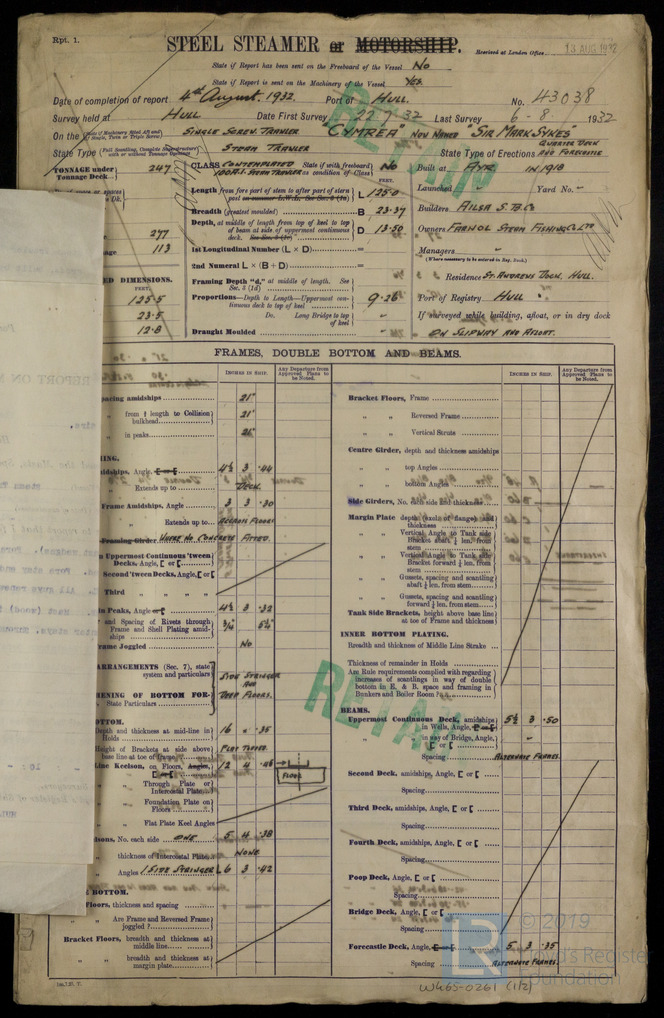 Rpt. 1.
STEEL STEAMER or MOTORSHIP.
Received at London Office 13 AUG 1932
State if Report has been sent on the Freeboard of the Vessel No
State if Report is sent on the Machinery of the Vessel Yes.
Date of completion of report 4th August. 1932. Port of Hull. No. 43038
Survey held at Hull Date First Survey 22 7 32 Last Survey 6 - 8 1932
On the Single Screw Trawler "CYMREA" Now Named "SIR MARK SYKES"
State Type Steam Trawler State Type of Erections Quarter Deck and Forecastle
TONNAGE under Tonnage Deck 247
CLASS Contemplated 100A1. Steam Trawler State if with freeboard as condition of Class No
Built at Ayr. in 1918
Launched Yard No. -
FEET.
Length from fore part of stem to after part of stern post L 125.0
Breadth (greatest moulded) B 23.37
Builders Ailsa S.B.Co
Depth, at middle of length from top of keel to top of beam at side of uppermost continuous deck. D 13.50
Owners Farnol Steam Fishing Co Ltd
277
113
1st Longitudinal Number (L × D) =
Managers "
(Where necessary to be entered in Reg. Book.)
2nd Numeral L × (B + D) =
Residence St. Andrews Dock, Hull.
ED DIMENSIONS.
FEET.
125.5
23.5
12.8
Framing Depth "d," at middle of length. See Sec. 3 (1d)
Proportions—Depth to Length—Uppermost continuous deck to top of keel 9.26
Do. Long Bridge to top of keel "
Draught Moulded "
Port of Registry Hull
If surveyed while building, afloat, or in dry dock
On Slipway and Afloat.
RETAIN
FRAMES, DOUBLE BOTTOM AND BEAMS.
INCHES IN SHIP. Any Departure from Approved Plans to be Noted.
INCHES IN SHIP. Any Departure from Approved Plans to be Noted.
pacing amidships 21"
from ⅗ length to Collision bulkhead 21"
in peaks 21"
ING.
idships, Angle, 4½ 3 .44
Extends up to Deck.
Frame Amidships, Angle 3 3 .30
Extends up to Across Floors
Framing Girder Where No Concrete Fitted.
n Uppermost Continuous 'tween Decks, Angle, [ or [
Second 'tween Decks, Angle, [ or [
Third " " " "
n Peaks, Angle 4½ 3 .32
and Spacing of Rivets through Frame and Shell Plating amidships ¾" 5¼"
rame Joggled No
ARRANGEMENTS (Sec. 7), state system and particulars Side Stringer and
ENING OF BOTTOM FOR- State Particulars Deep Floors.
OTTOM.
Depth and thickness at mid-line in Holds 16 " .35
Height of Brackets at side above base line at toe of frame Flat Topped
Line Keelson, on Floors, 12 4
FLOOR
Through Plate or Intercostal Plate
Foundation Plate on Floors
Flat Plate Keel Angles
sons, No. each side ONE 5 4 .38
thickness of Intercostal Plate None
Angles 1 Side Stringer 6 3 .42
BOTTOM.
Floors, thickness and spacing
Are Frame and Reversed Frame joggled ?
Bracket Floors, breadth and thickness at middle line
" breadth and thickness at margin plate
Bracket Floors, Frame
" " Reversed Frame
" " Vertical Struts
Centre Girder, depth and thickness amidships
" top Angles
" bottom Angles
Side Girders, No. each side and thickness
Margin Plate depth (exclu. of flange) and thickness
" Vertical Angle to Tank side Bracket abaft ¼ len. from stem
" Vertical Angle to Tank side Bracket forward ¼ len. from stem
" Gussets, spacing and scantling abaft ¼ len. from stem
" Gussets, spacing and scantling forward ¼ len. from stem
Tank Side Brackets, height above base line at toe of Frame and thickness
INNER BOTTOM PLATING.
Breadth and thickness of Middle Line Strake
Thickness of remainder in Holds
Are Rule requirements complied with regarding increases of scantlings in way of double bottom in E. & B. space and framing in Bunkers and Boiler Room ?
BEAMS.
Uppermost Continuous Deck, amidships in Wells, Angle, 5½ 3 .50
" in way of Bridge, Angle, [ or [ "
Spacing Alternate Frames.
Second Deck, amidships, Angle, [ or [
Spacing
Third Deck, amidships, Angle, [ or [
Spacing
Fourth Deck, amidships, Angle, [ or [
Spacing
Poop Deck, Angle, [ or [
Spacing
Bridge Deck, Angle, [ or [
Spacing
Forecastle Deck, Angle, 5 3 .35
Spacing Alternate Frames.
RETAIN
© 2019
Lloyd's Register
Foundation
W465-0261 (1/2)